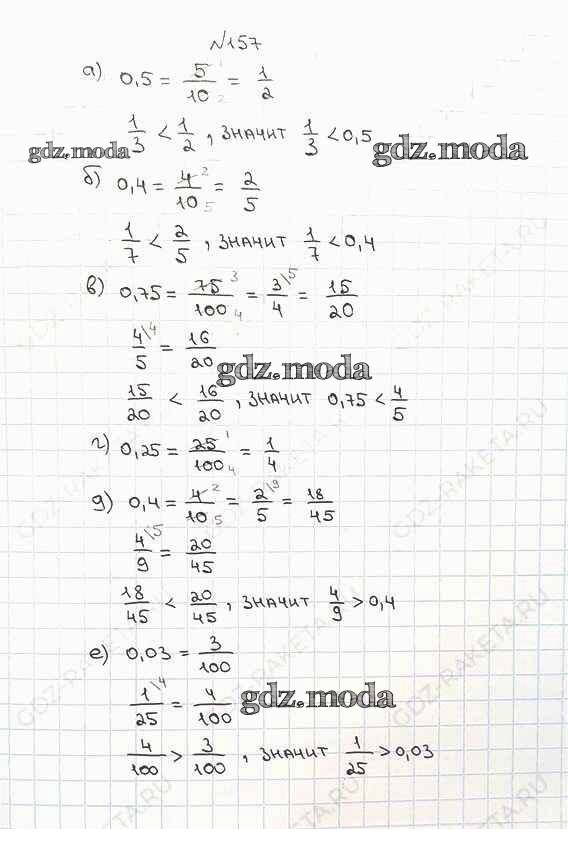 №157
а) 0,5 = 5/10 = 1/2
1/3 < 1/2, значит 1/3 < 0,5
gdz.moda gdz.moda
б) 0,4 = 4/10 = 2/5
1/7 < 2/5, значит 1/7 < 0,4
в) 0,75 = 75/100 = 3\5/4 = 15/20
4\4/5 = 16/20
gdz.moda
15/20 < 16/20, значит 0,75 < 4/5
г) 0,25 = 25/100 = 1/4
д) 0,4 = 4/10 = 2\9/5 = 18/45
4\5/9 = 20/45
18/45 < 20/45, значит 4/9 > 0,4
е) 0,03 = 3/100
1\4/25 = 4/100
gdz.moda
4/100 > 3/100, значит 1/25 > 0,03
GDZ-RAKETA.RU